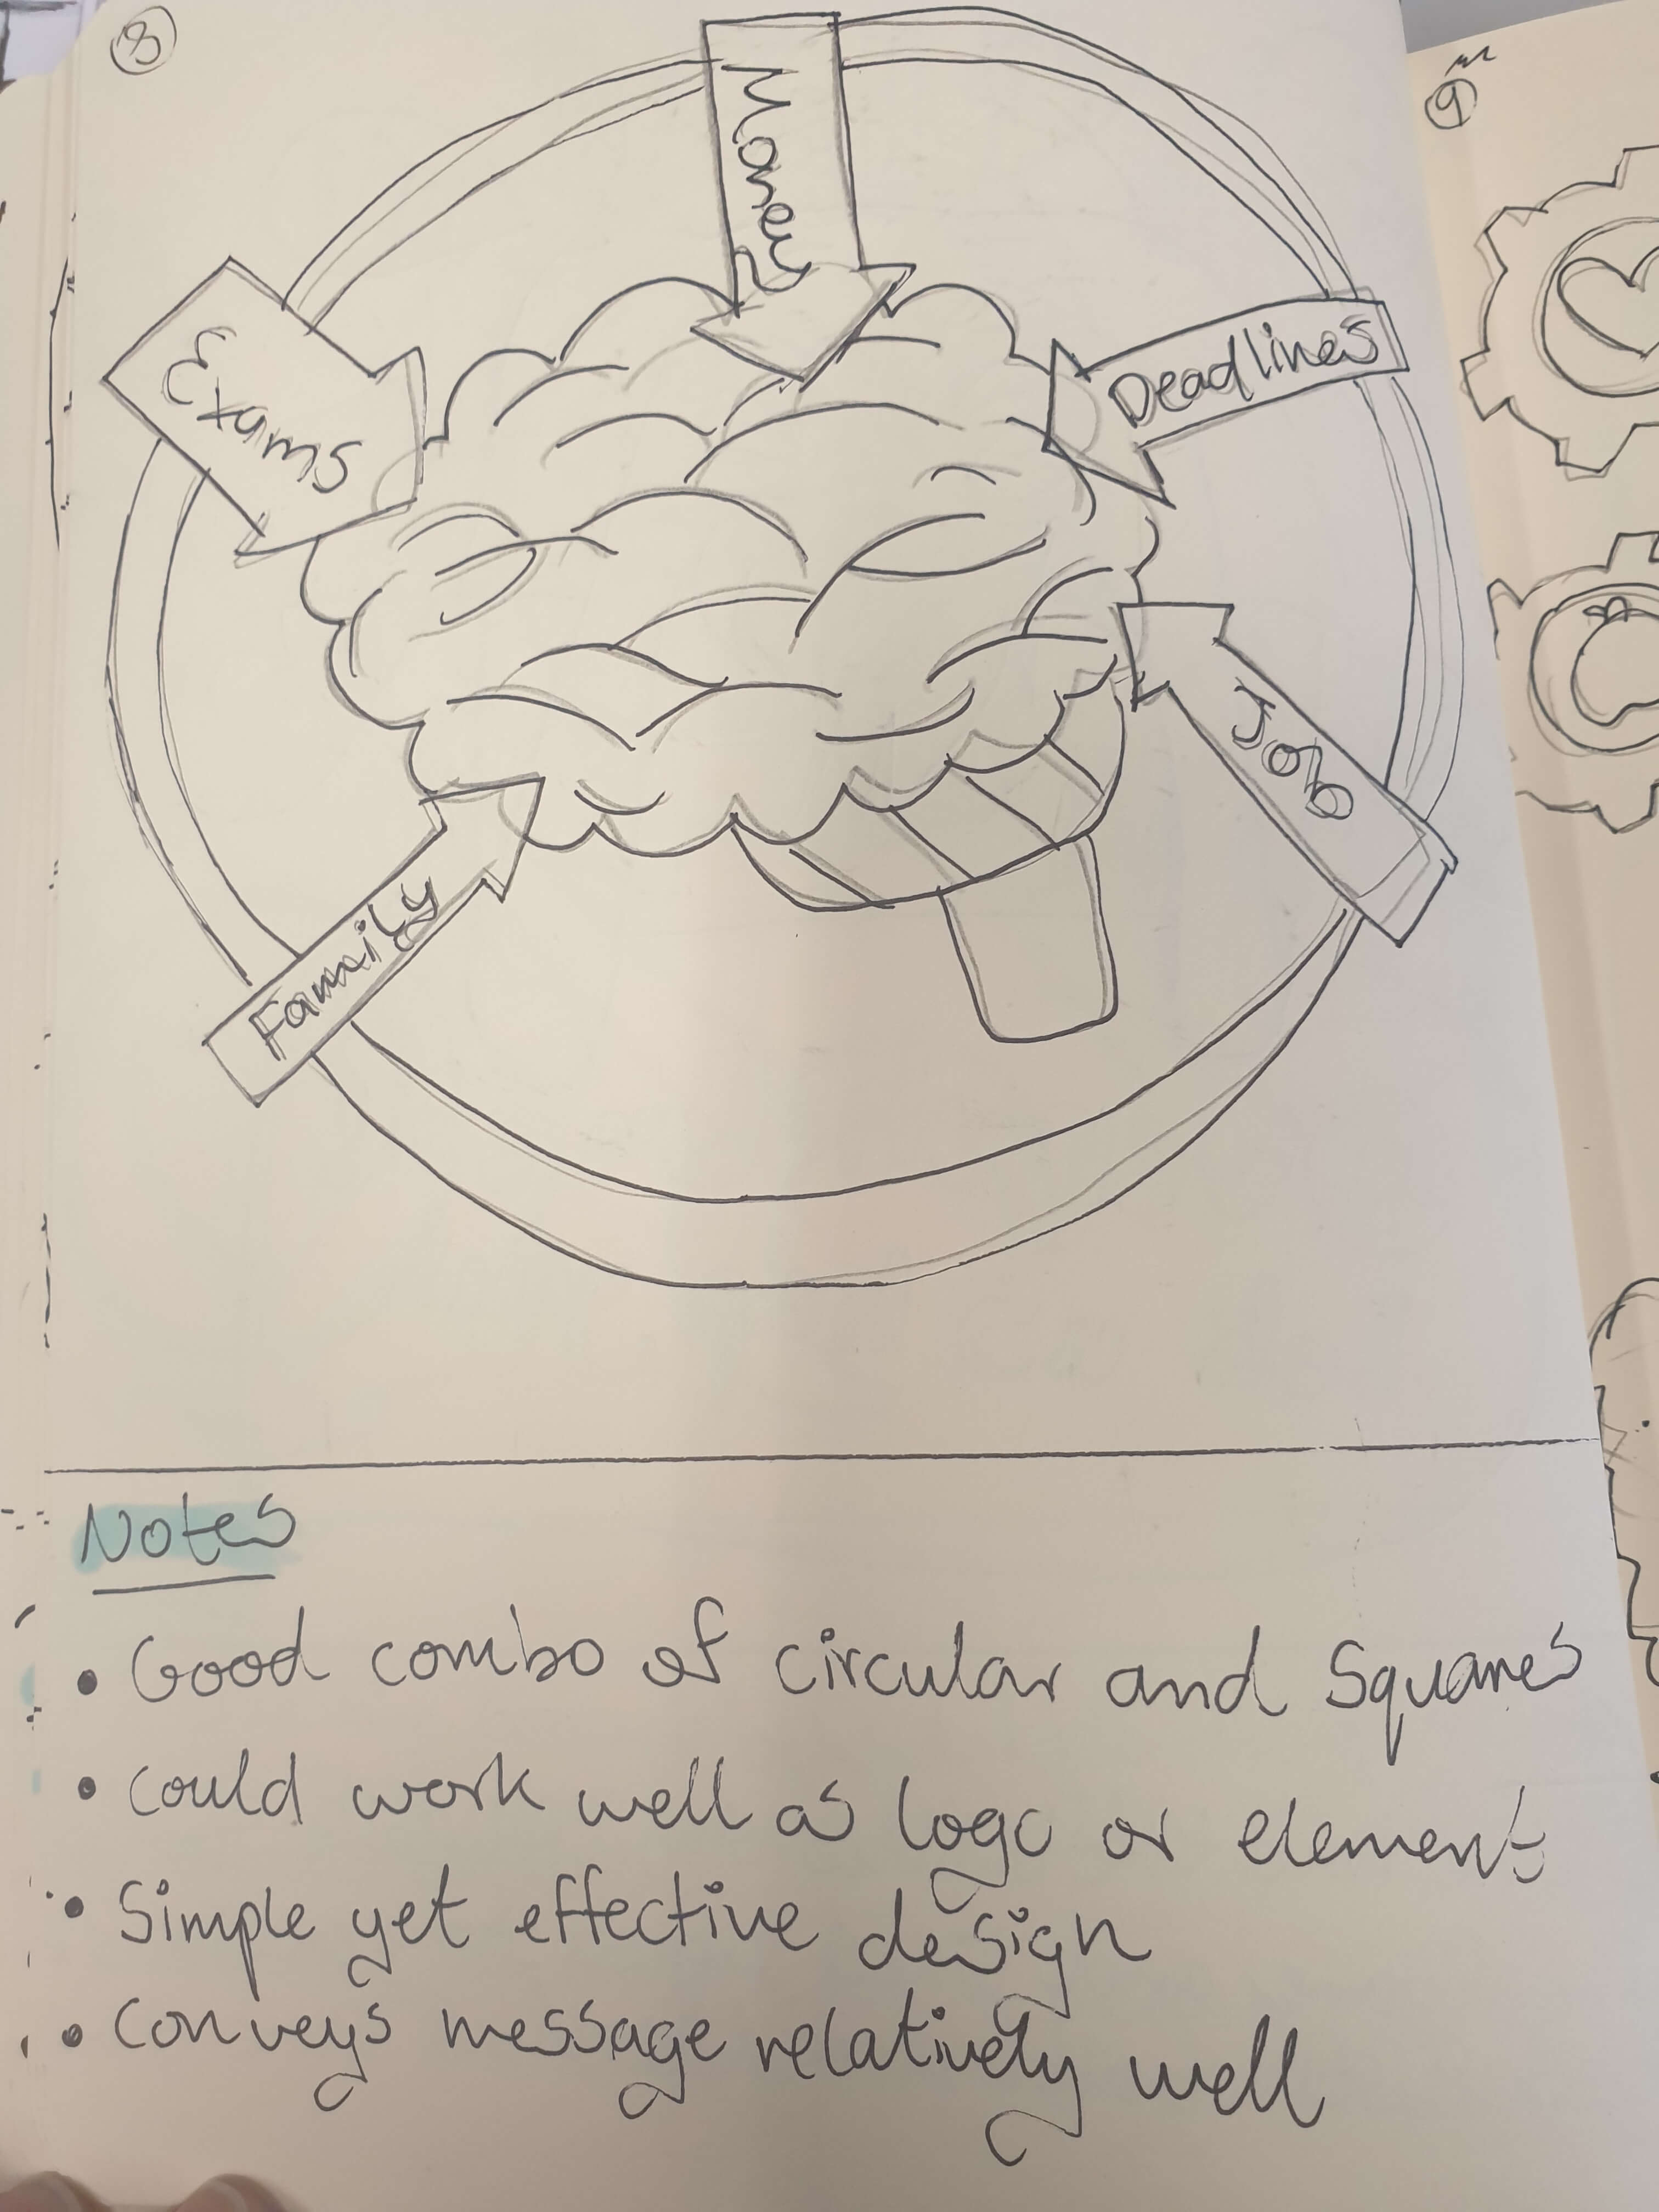 8
9
Money
Exams
Deadlines
Job
Family
Notes
• Good combo of circular and squares
• could work well as logo or element
• Simple yet effective design
• conveys message relatively well